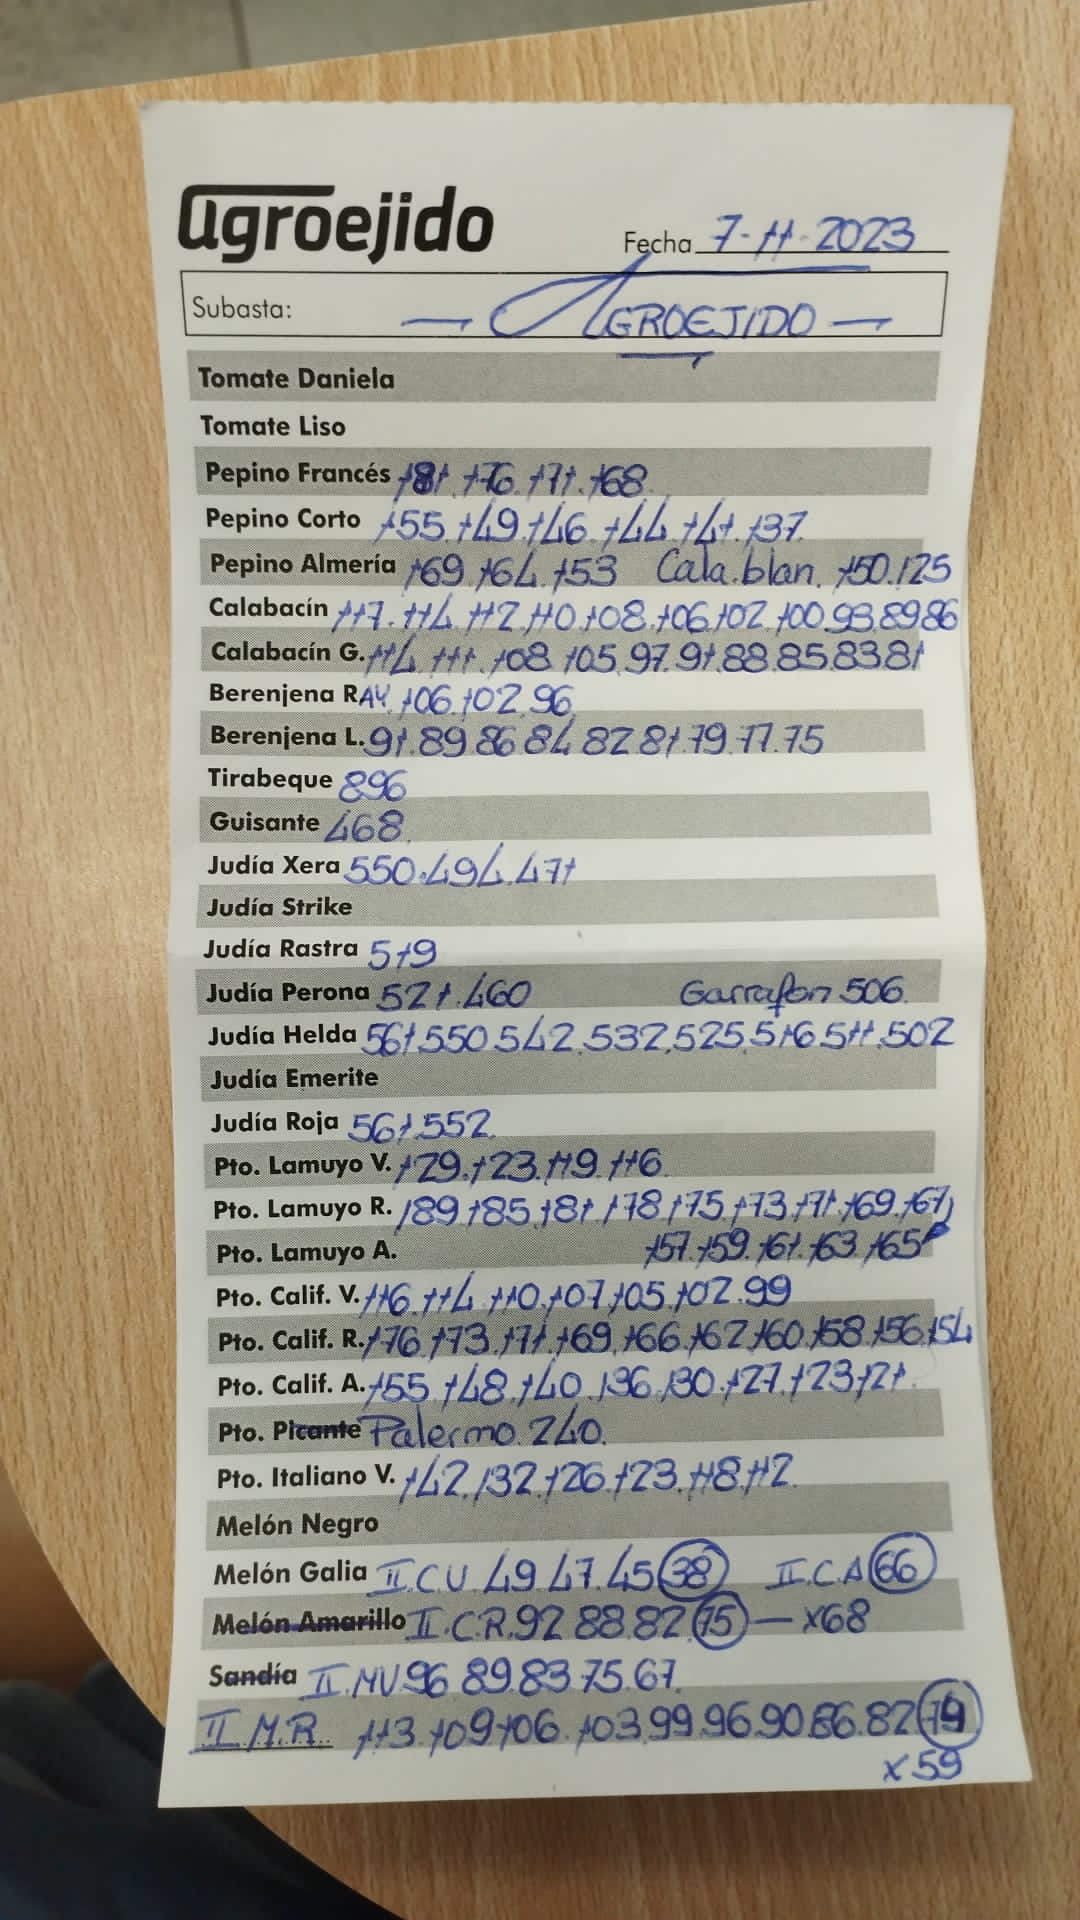 agroejido
Fecha 7-11-2023
Subasta: — AGROEJIDO —
Tomate Daniela
Tomate Liso
Pepino Francés 181.176.171.168
Pepino Corto 155.149.146.144.141.137.
Pepino Almería 169.164.153 Cala.blan. 150.125
Calabacín 117.114.112.110.108.106.102.100.93.89.86
Calabacín G. 114.111.108.105.97.91.88.85.83.81
Berenjena RAY. 106.102.96
Berenjena L. 91.89.86.84.82.81.79.77.75
Tirabeque 896
Guisante 468.
Judía Xera 550.494.471
Judía Strike
Judía Rastra 519
Judía Perona 521.460 Garrafon 506.
Judía Helda 561.550.542.532.525.516.511.502
Judía Emerite
Judía Roja 561.552.
Pto. Lamuyo V. 129.123.119.116.
Pto. Lamuyo R. 189.185.181.178.175.173.171.169.167
Pto. Lamuyo A. 157.159.161.163.165
Pto. Calif. V. 116.114.110.107.105.102.99
Pto. Calif. R. 176.173.171.169.166.162.160.158.156.154
Pto. Calif. A. 155.148.140.136.130.127.123.121.
Pto. Picante Palermo.240.
Pto. Italiano V. 142.132.126.123.118.112.
Melón Negro
Melón Galia II.C.V. 49.47.45 38 II.C.A 66
Melón Amarillo II.C.R.92.88.82.75 — x68
Sandía II.MV.96.89.83.75.67.
II.M.R. 113.109.106.103.99.96.90.86.82 79
x59